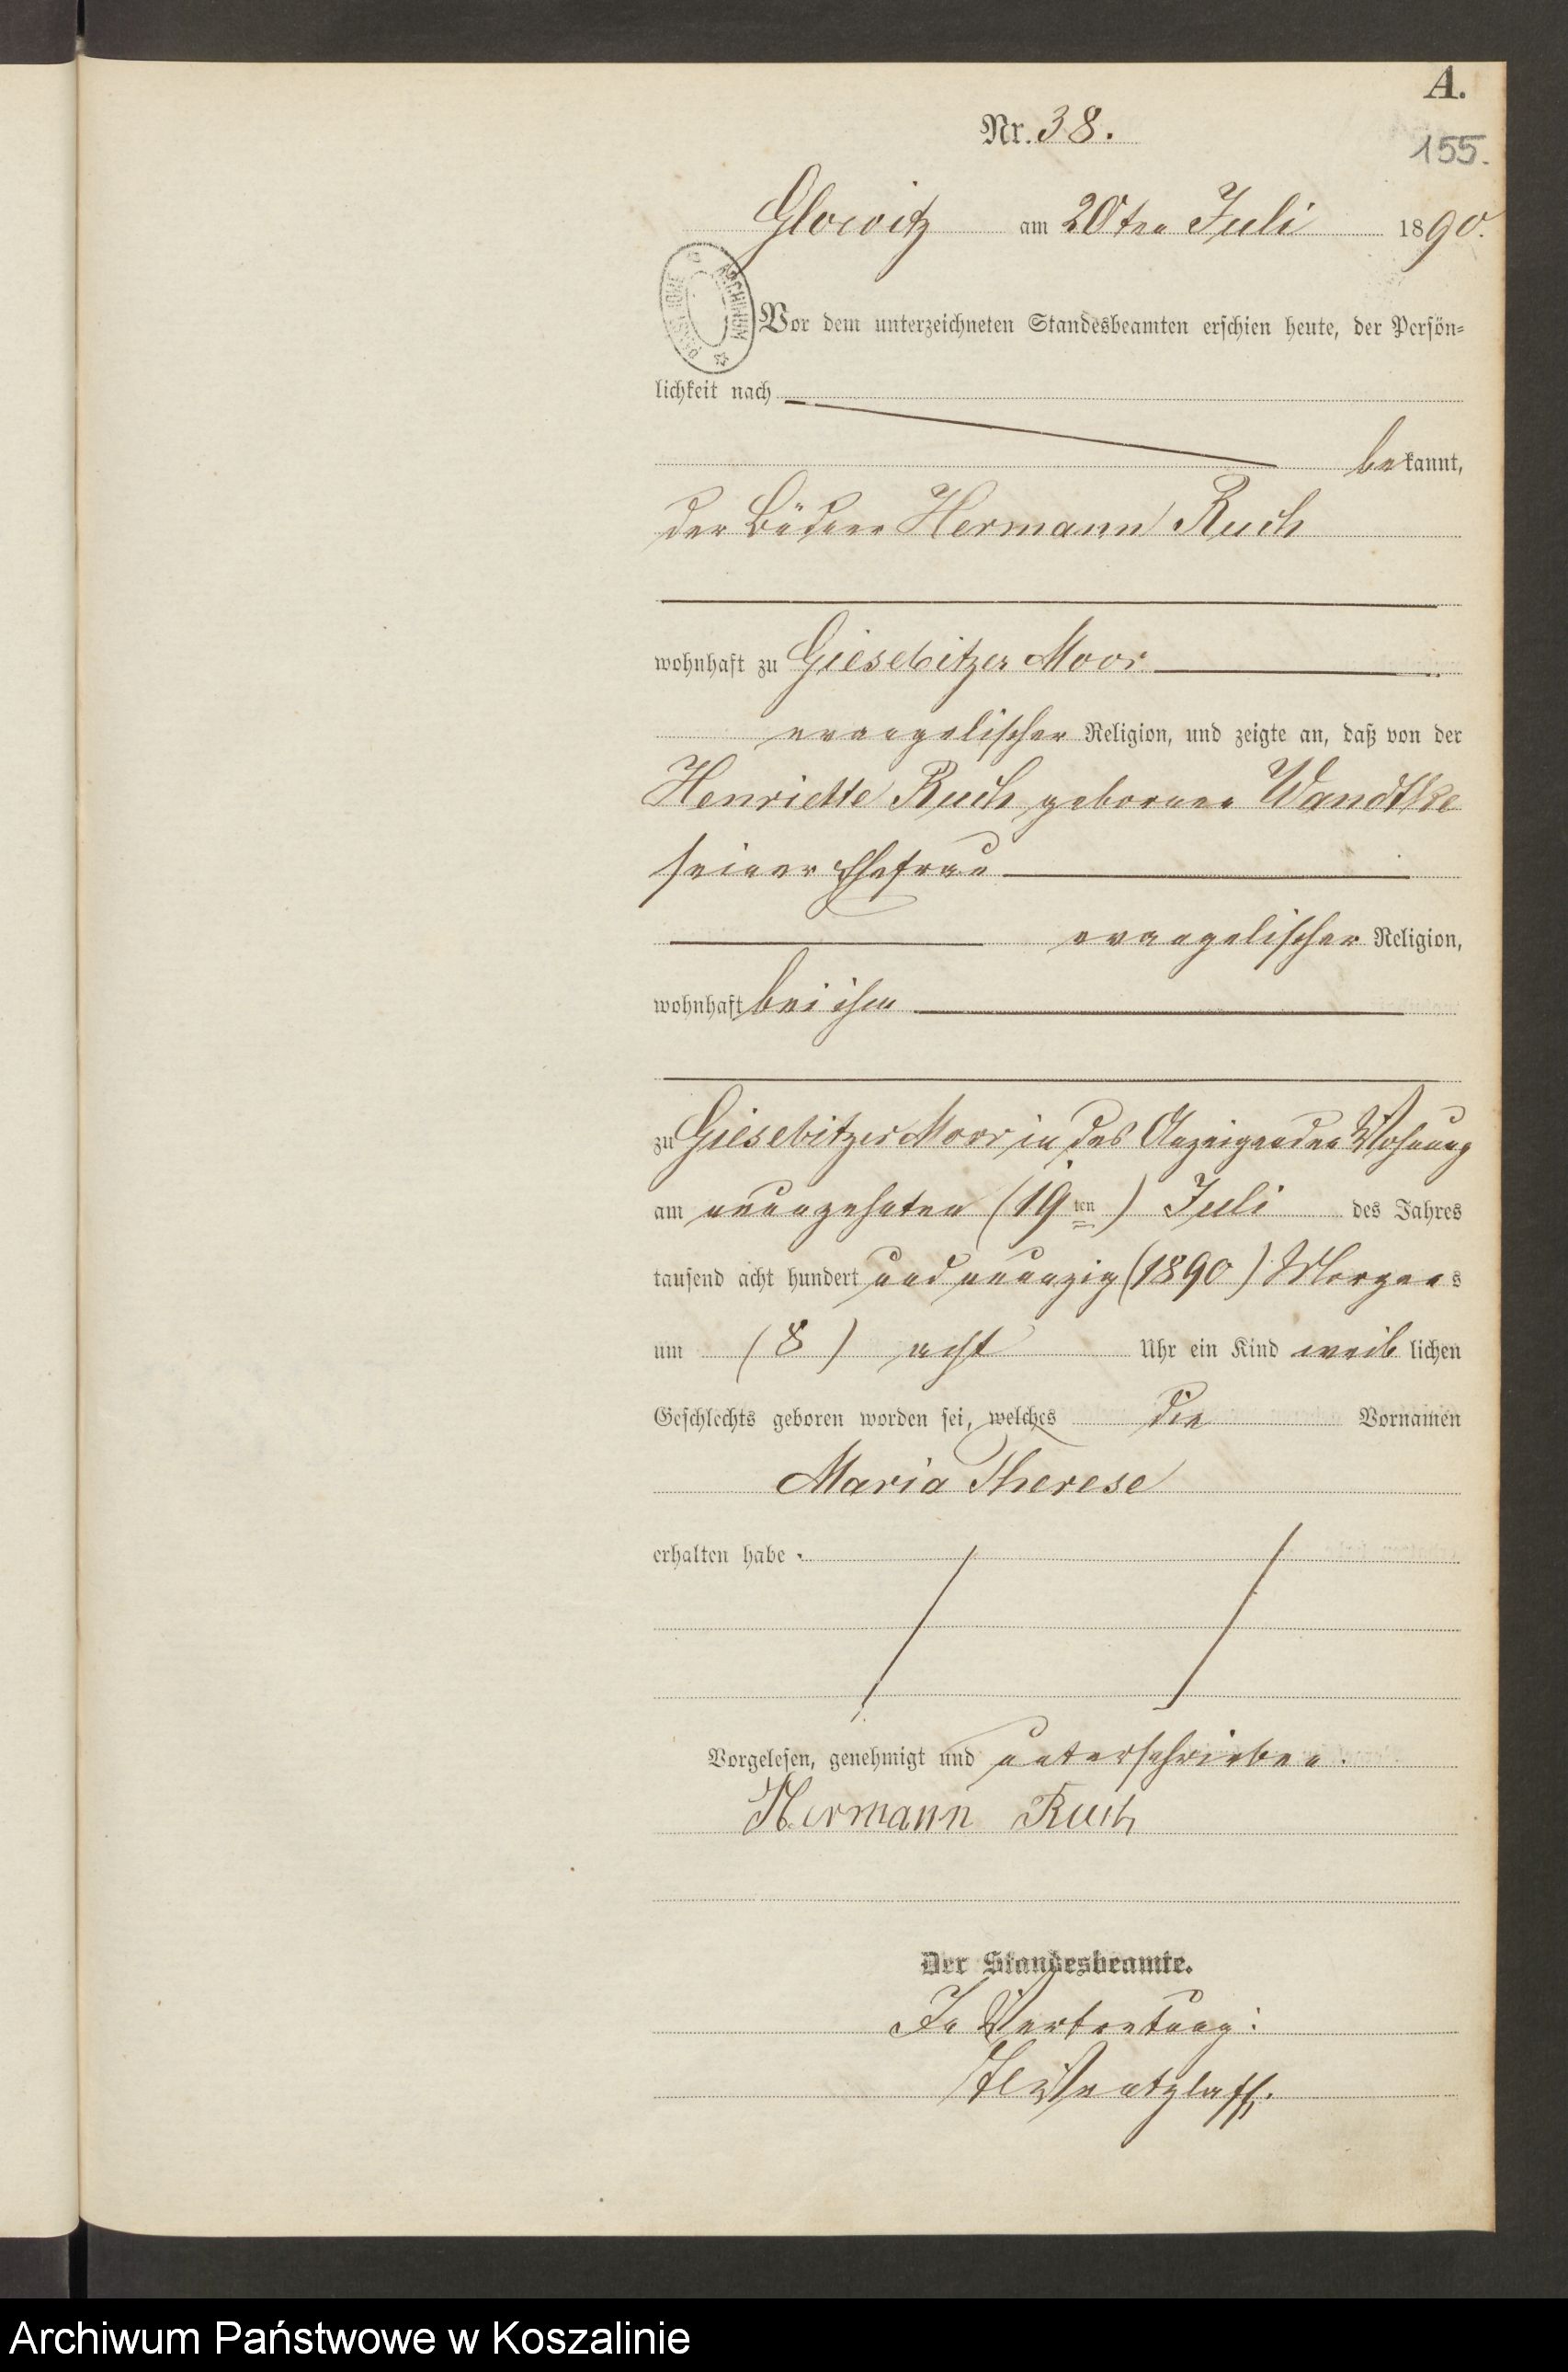 A.
Nr. 38.
155.
Glowitz am 20ten Juli 1890.
Vor dem unterzeichneten Standesbeamten erschien heute, der Persön=
lichkeit nach
bekannt,
der Büdner Hermann Ruch
wohnhaft zu Giesebitzer Moor
evangelischer Religion, und zeigte an, daß von der
Henriette Ruch geborene Wandtke
seiner Ehefrau
evangelischer Religion,
wohnhaft bei ihm
zu Giesebitzer Moor in des Anzeigenden Wohnung
am neunzehnten (19ten) Juli des Jahres
tausend acht hundert und neunzig (1890) Morgens
um (8) acht Uhr ein Kind weiblichen
Geschlechts geboren worden sei, welches die Vornamen
Maria Therese
erhalten habe.
Vorgelesen, genehmigt und unterschrieben.
Hermann Ruch
Der Standesbeamte.
In Vertretung:
ARCHIWUM
Archiwum Państwowe w Koszalinie